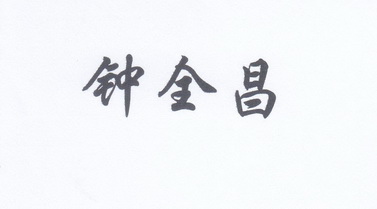 钟全昌